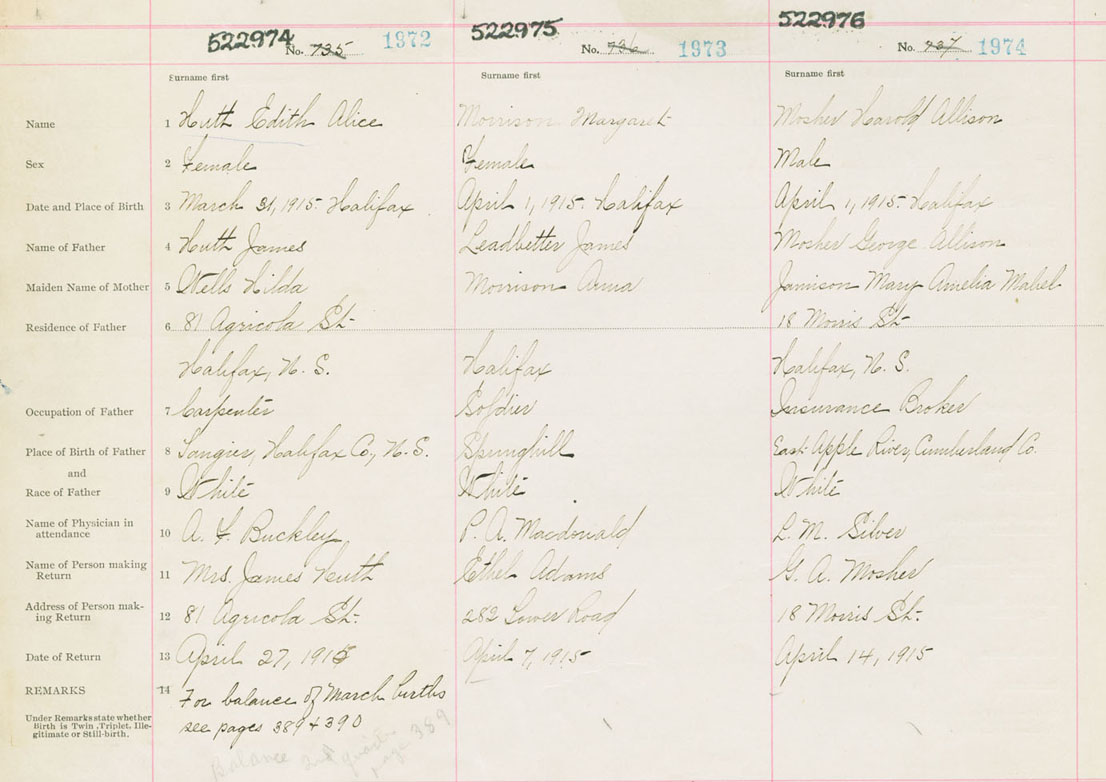 522974 522975 522976
No. 735 1972 No. 736 1973 No. 737 1974
Surname first Surname first Surname first
Name 1 Huth Edith Alice Morrison Margaret Mosher Harold Allison
Sex 2 Female Female Male
Date and Place of Birth 3 March 31, 1915 - Halifax April 1, 1915 - Halifax April 1, 1915 - Halifax
Name of Father 4 Huth James Leadbetter James Mosher George Allison
Maiden Name of Mother 5 Wells Hilda Morrison Anna Jamison Mary Amelia Mabel
Residence of Father 6 81 Agricola St- 18 Morris St-
Halifax, N. S. Halifax Halifax, N. S.
Occupation of Father 7 Carpenter Soldier Insurance Broker
Place of Birth of Father 8 Tangier, Halifax Co., N. S. Springhill East Apple River, Cumberland Co.
and
Race of Father 9 White White White
Name of Physician in
attendance 10 A. F. Buckley P. A. Macdonald L. M. Silver
Name of Person making
Return 11 Mrs. James Huth Ethel Adams G. A. Mosher
Address of Person mak-
ing Return 12 81 Agricola St. 282 Lower Road 18 Morris St.
Date of Return 13 April 27, 1915 April 7, 1915 April 14, 1915
REMARKS 14 For balance of March births
see pages 389 + 390
Under Remarks state whether
Birth is Twin, Triplet, Ille-
gitimate or Still-birth.
Balance 2nd quarter
page 389